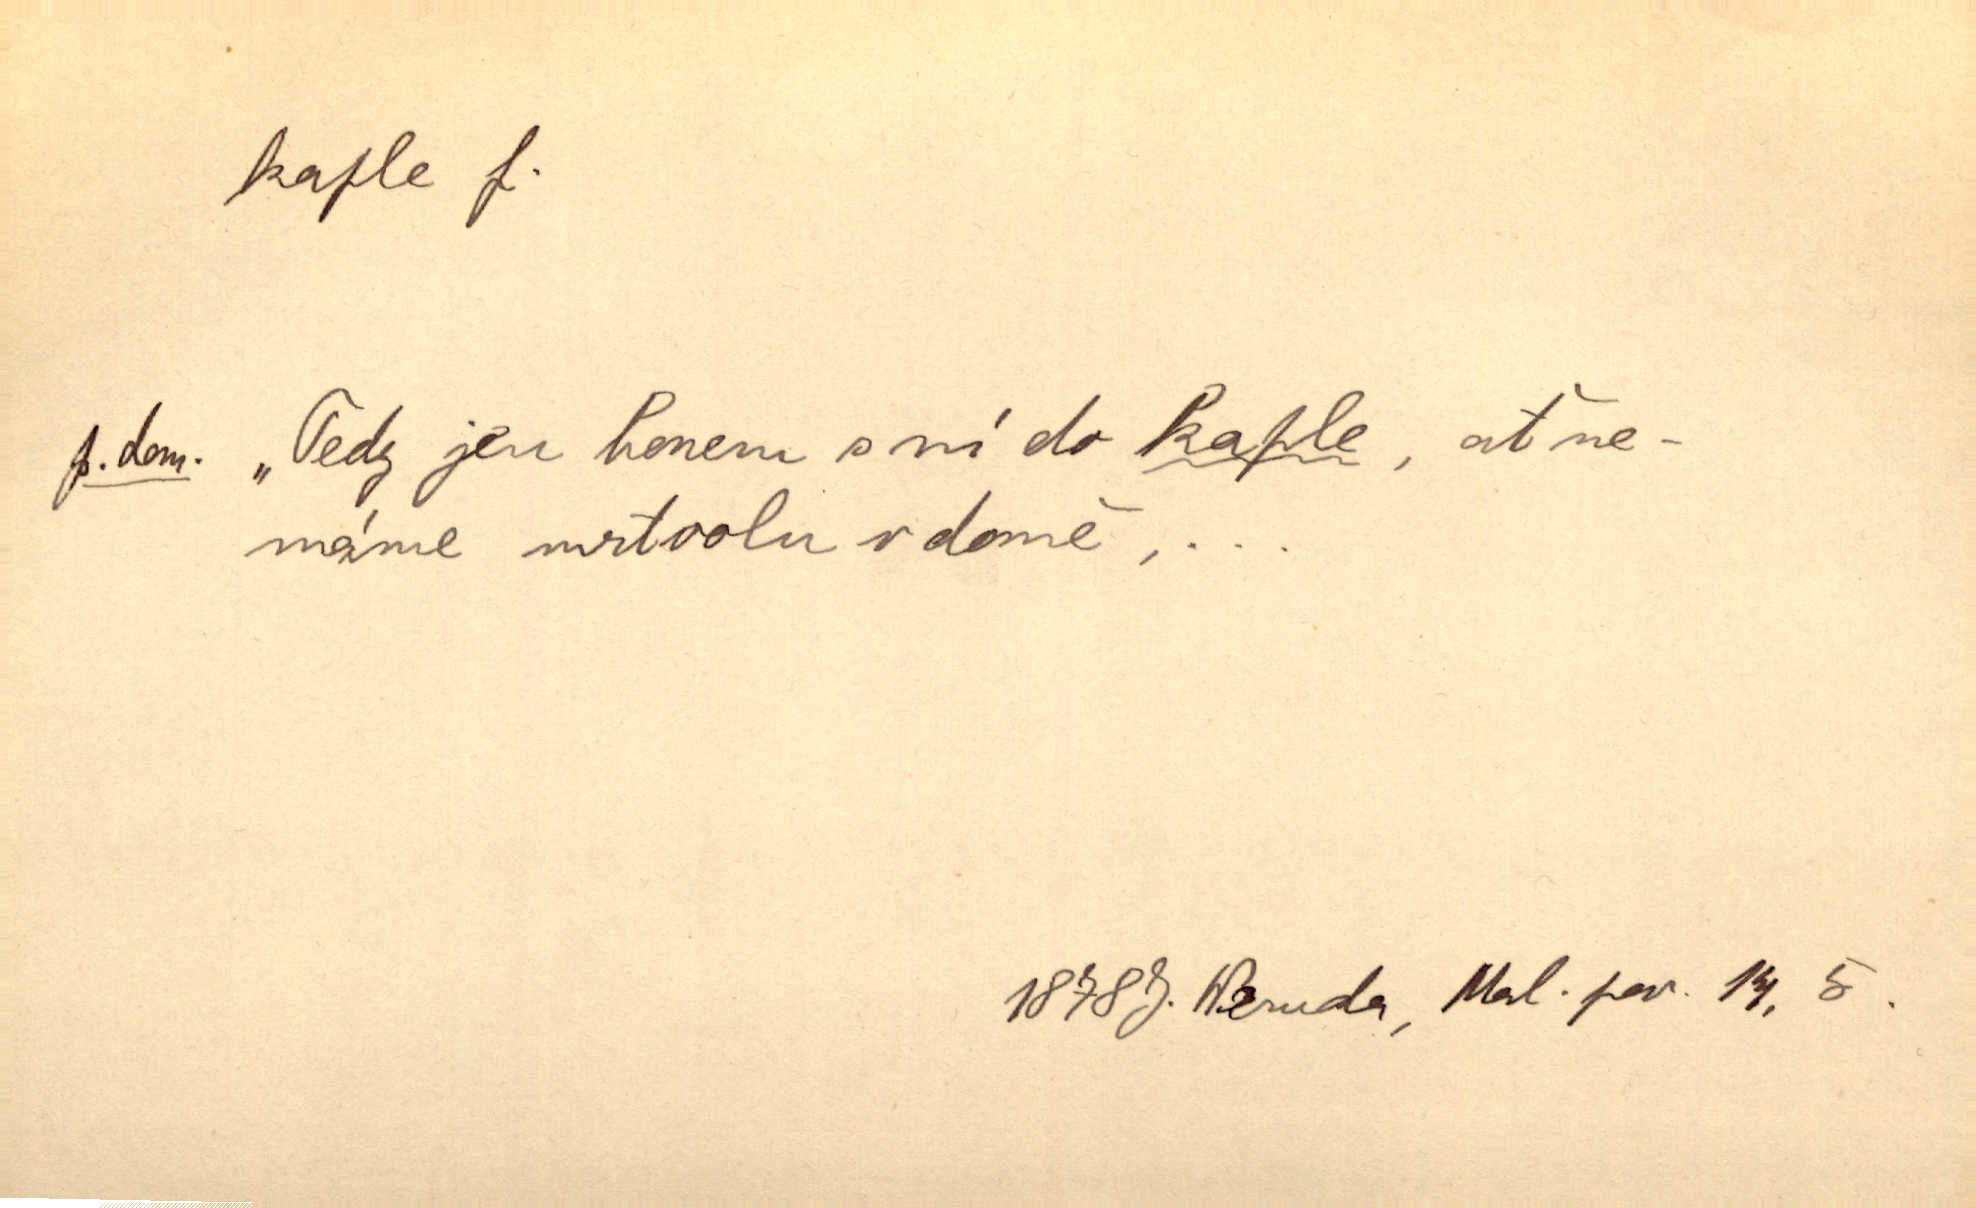 kaple f.
p. dom. „Tedy jen honem s ní do kaple, ať ne-
máme mrtvolu v domě, . . .
1878 J. Neruda, Mal. pov. 14, 5.